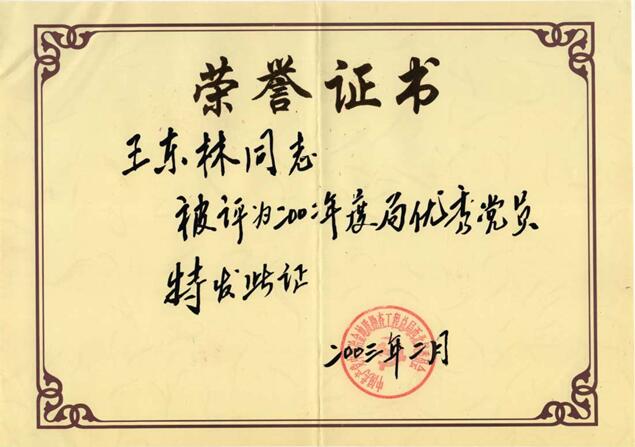 荣誉证书
王东林同志
被评为二00二年度局优秀党员
特发此证
二00三年二月